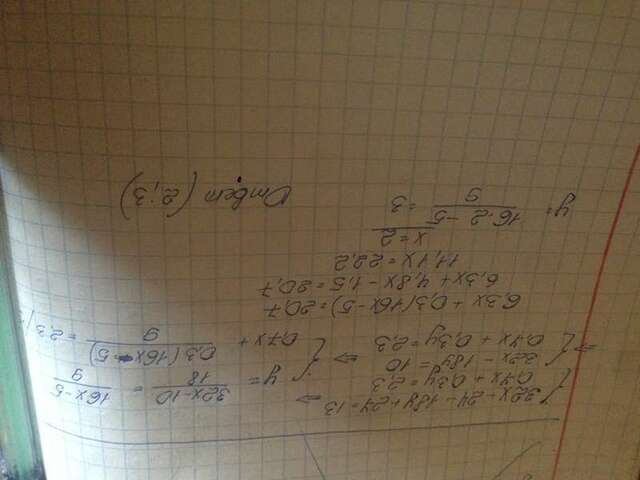 { 32x - 24 - 18y + 27 = 13 ⇒
0,7x + 0,3y = 2,3
⇒ { 32x - 18y = 10 ⇒
0,7x + 0,3y = 2,3
{ y = 32x-10/18 = 16x-5/9
0,7x + 0,3(16x-5)/9 = 2,3
6,3x + 0,3(16x-5) = 20,7
6,3x + 4,8x - 1,5 = 20,7
11,1x = 22,2
x = 2
y = 16·2-5/9 = 3
Ответ (2;3)